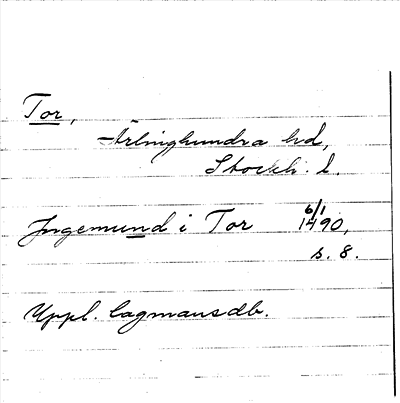 Tor,
Ärlinghundra hd,
Stockh. l.
Ingemund i Tor 6/1 1490,
s. 8.
Uppl. lagmansdb.